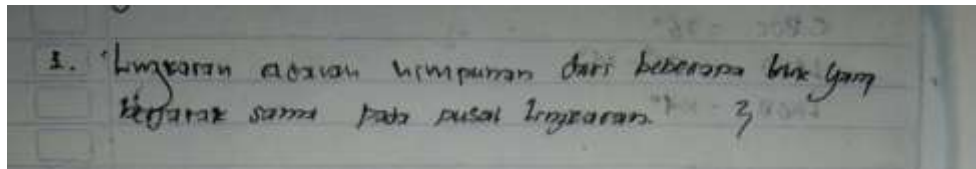 1. Lingkaran adalah himpunan dari beberapa titik yang
berjarak sama pada pusat lingkaran. 3